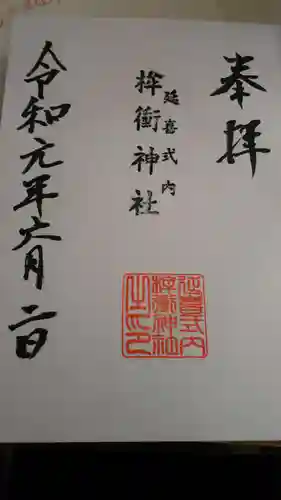 奉拝
延喜式内
桙衝神社
延喜式内
桙衝神社
之印
令和元年六月二日